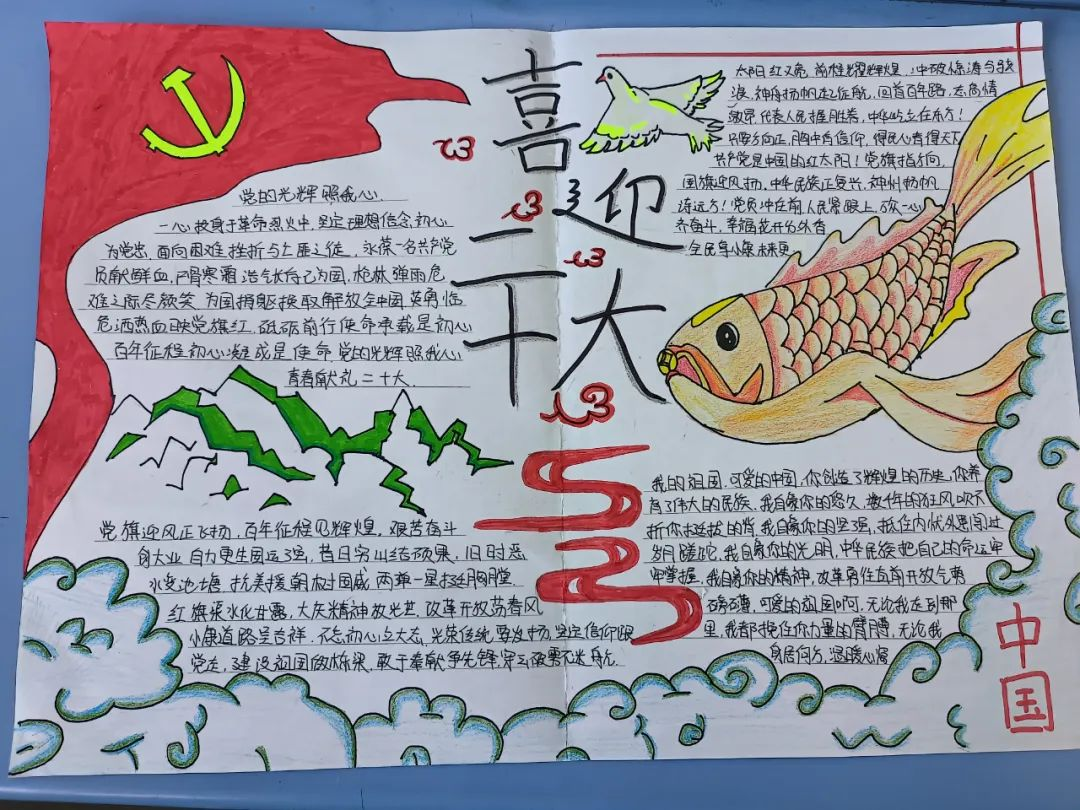 喜迎
二十大
党的光辉照我心
一心投身于革命烈火中,坚定理想信念,初心
为党忠,面向困难挫折与亡匪之徒,永葆一名共产党
员献鲜血,严寒寒霜浩气长存己为国,枪林弹雨危
难之际尽欲笑,为国捐躯换取解放全中国,英勇临
危洒热血映党旗红,砥砺前行使命承载是初心
百年征程初心凝成是使命,党的光辉照我心
青春献礼二十大
太阳红又亮,前程耀辉煌,冲破惊涛与骇
浪,神舟扬帆起征航,回首百年路,志高情
激昂,代表人民握胜券,中华屹立在东方!
只要方向正,胸中有信仰,得民心者得天下
共产党是中国的红太阳!党旗指方向,
国旗迎风扬,中华民族正复兴,神州扬帆
涛远方!党员冲在前,人民紧跟上,众一心
齐奋斗,幸福花开
全民享小康
党旗迎风正飞扬,百年征程见辉煌,艰苦奋斗
身大业,自力更生国运强,昔日穷山结硕果,旧时恶
水变池塘,抗美援朝树国威,两弹一星挺胸膛
红旗渠水化甘露,大庆精神放光芒,改革开放荡春风
小康道路呈吉祥,不忘初心立大志,光荣传统要发扬,坚定信仰跟
党走,建设祖国做栋梁,敢于奉献争先锋,穿云破雾不迷航
我的祖国,可爱的中国,你创造了辉煌的历史,你养
育了伟大的民族,我自豪你的悠久,数千年的狂风吹不
折你挺拔的背,我自豪你的坚强,抵住内忧外患闯过
岁月蹉跎,我自豪你的光明,中华民族把自己的命运牢
牢掌握,我自豪你的精神,改革勇往直前开放气势
磅礴,可爱的祖国啊,无论我走到那
里,我都挽住你力量的臂膊,无论我
身居何方,温暖心窝
中国